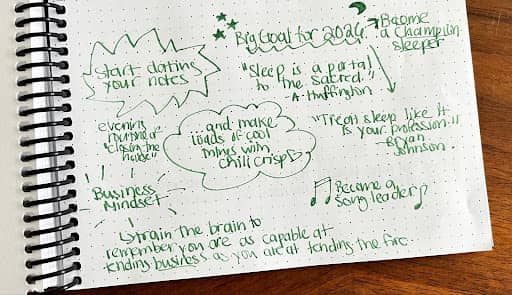 Start dating
your notes
Big Goal for 2026
→ Become
a champion
sleeper
"Sleep is a portal
to the sacred."
-A. Huffington
"Treat sleep like it
is your profession."
-Bryan
Johnson
evening
routine of
"closing the
house"
...and make
loads of cool
things with
chili crisp
Business
Mindset
Become a
song leader
train the brain to
remember you are as capable at
tending business as you are at tending the fire.